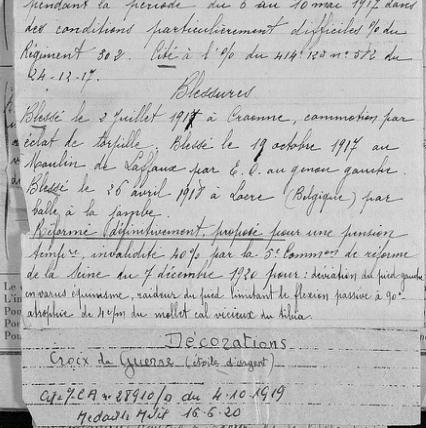 pendant la période du 6 au 10 mai 1917 dans
des conditions particulièrement difficiles % du
Régiment 302. Cité à l'% du 414e
24-12-17.
Blessures
Blessé le 2 Juillet 1917 à Craonne, commotion par
éclat de torpille. Blessé le 19 octobre 1917 au
Moulin de Laffaux par E. O. au genou gauche.
Blessé le 26 avril 1918 à Locre (Belgique) par
balle à la jambe.
Réformé définitivement, proposé pour une pension
temp.re invalidité 40% par la 5e Comm.on de réforme
de la Seine du 7 décembre 1920 pour : déviation du pied gauche
en varus équinisme, raideur du pied limitant de flexion passive à 90°
atrophie de 4c/m du mollet cal vicieux du tibia.
Décorations
Croix de Guerre (étoile d'argent)
28910/D du 4.10.1919
Médaille Milit 16.6.20